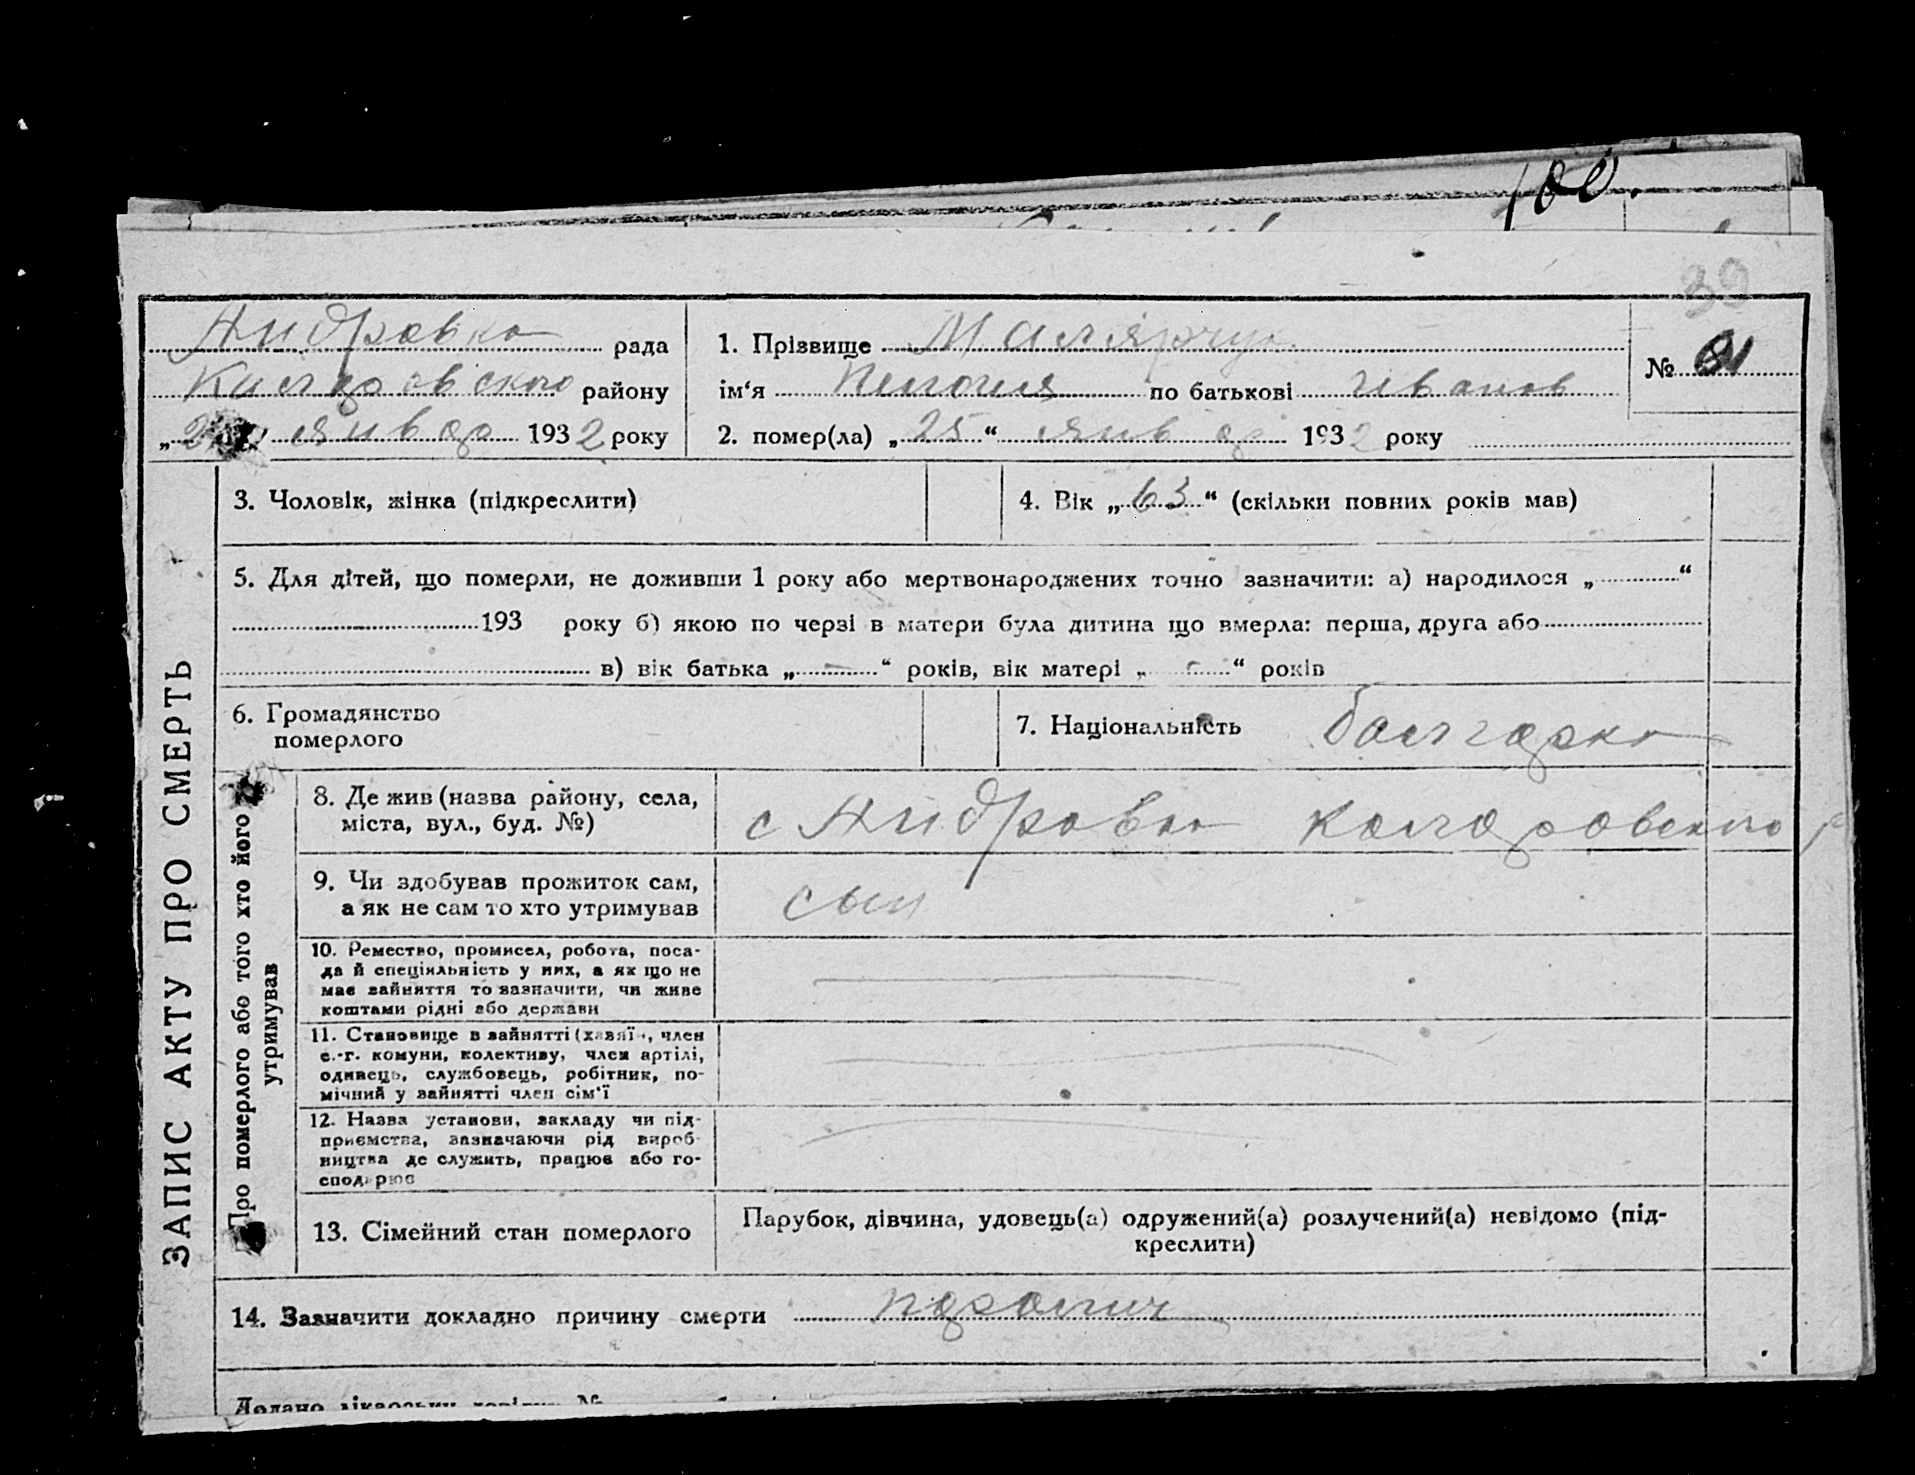 100.
39
Андровка рада
1. Прізвище Малярчук
№ 81
Коларовского району
ім‘я Пелогия по батькові Иванов
„ 2 “ январ 1932 року
2. помер(ла) „ 25 “ январ 1932 року
ЗАПИС АКТУ ПРО СМЕРТЬ
3. Чоловік, жінка (підкреслити)
4. Вік „ 63 “ (скільки повних років мав)
5. Для дітей, що померли, не доживши 1 року або мертвонароджених точно зазначити: а) народилося „ “
193 року б) якою по черзі в матери була дитина що вмерла: перша, друга або
в) вік батька „ – “ років, вік матері „ “ років
6. Громадянство
померлого
7. Національність болгарка
Про померлого або того хто його
утримував
8. Де жив (назва району, села,
міста, вул., буд. №)
с Андровка Коларовского р
9. Чи здобував прожиток сам,
а як не сам то хто утримував
сын
10. Ремество, промисел, робота, поса-
да й спеціяльність у них, а як що не
має зайняття то зазначити, чи живе
коштами рідні або держави
11. Становище в зайнятті (хазяїн, член
с.-г. комуни, колективу, член артілі,
одинець, службовець, робітник, по-
мічний у зайнятті член сім'ї
12. Назва установи, закладу чи під-
приємства, зазначаючи рід вироб-
ництва де служить, працює або го-
сподарює
13. Сімейний стан померлого
Парубок, дівчина, удовець(а) одружений(а) розлучений(а) невідомо (під-
креслити)
14. Зазначити докладно причину смерти паралич
Додано лікарську довідку №